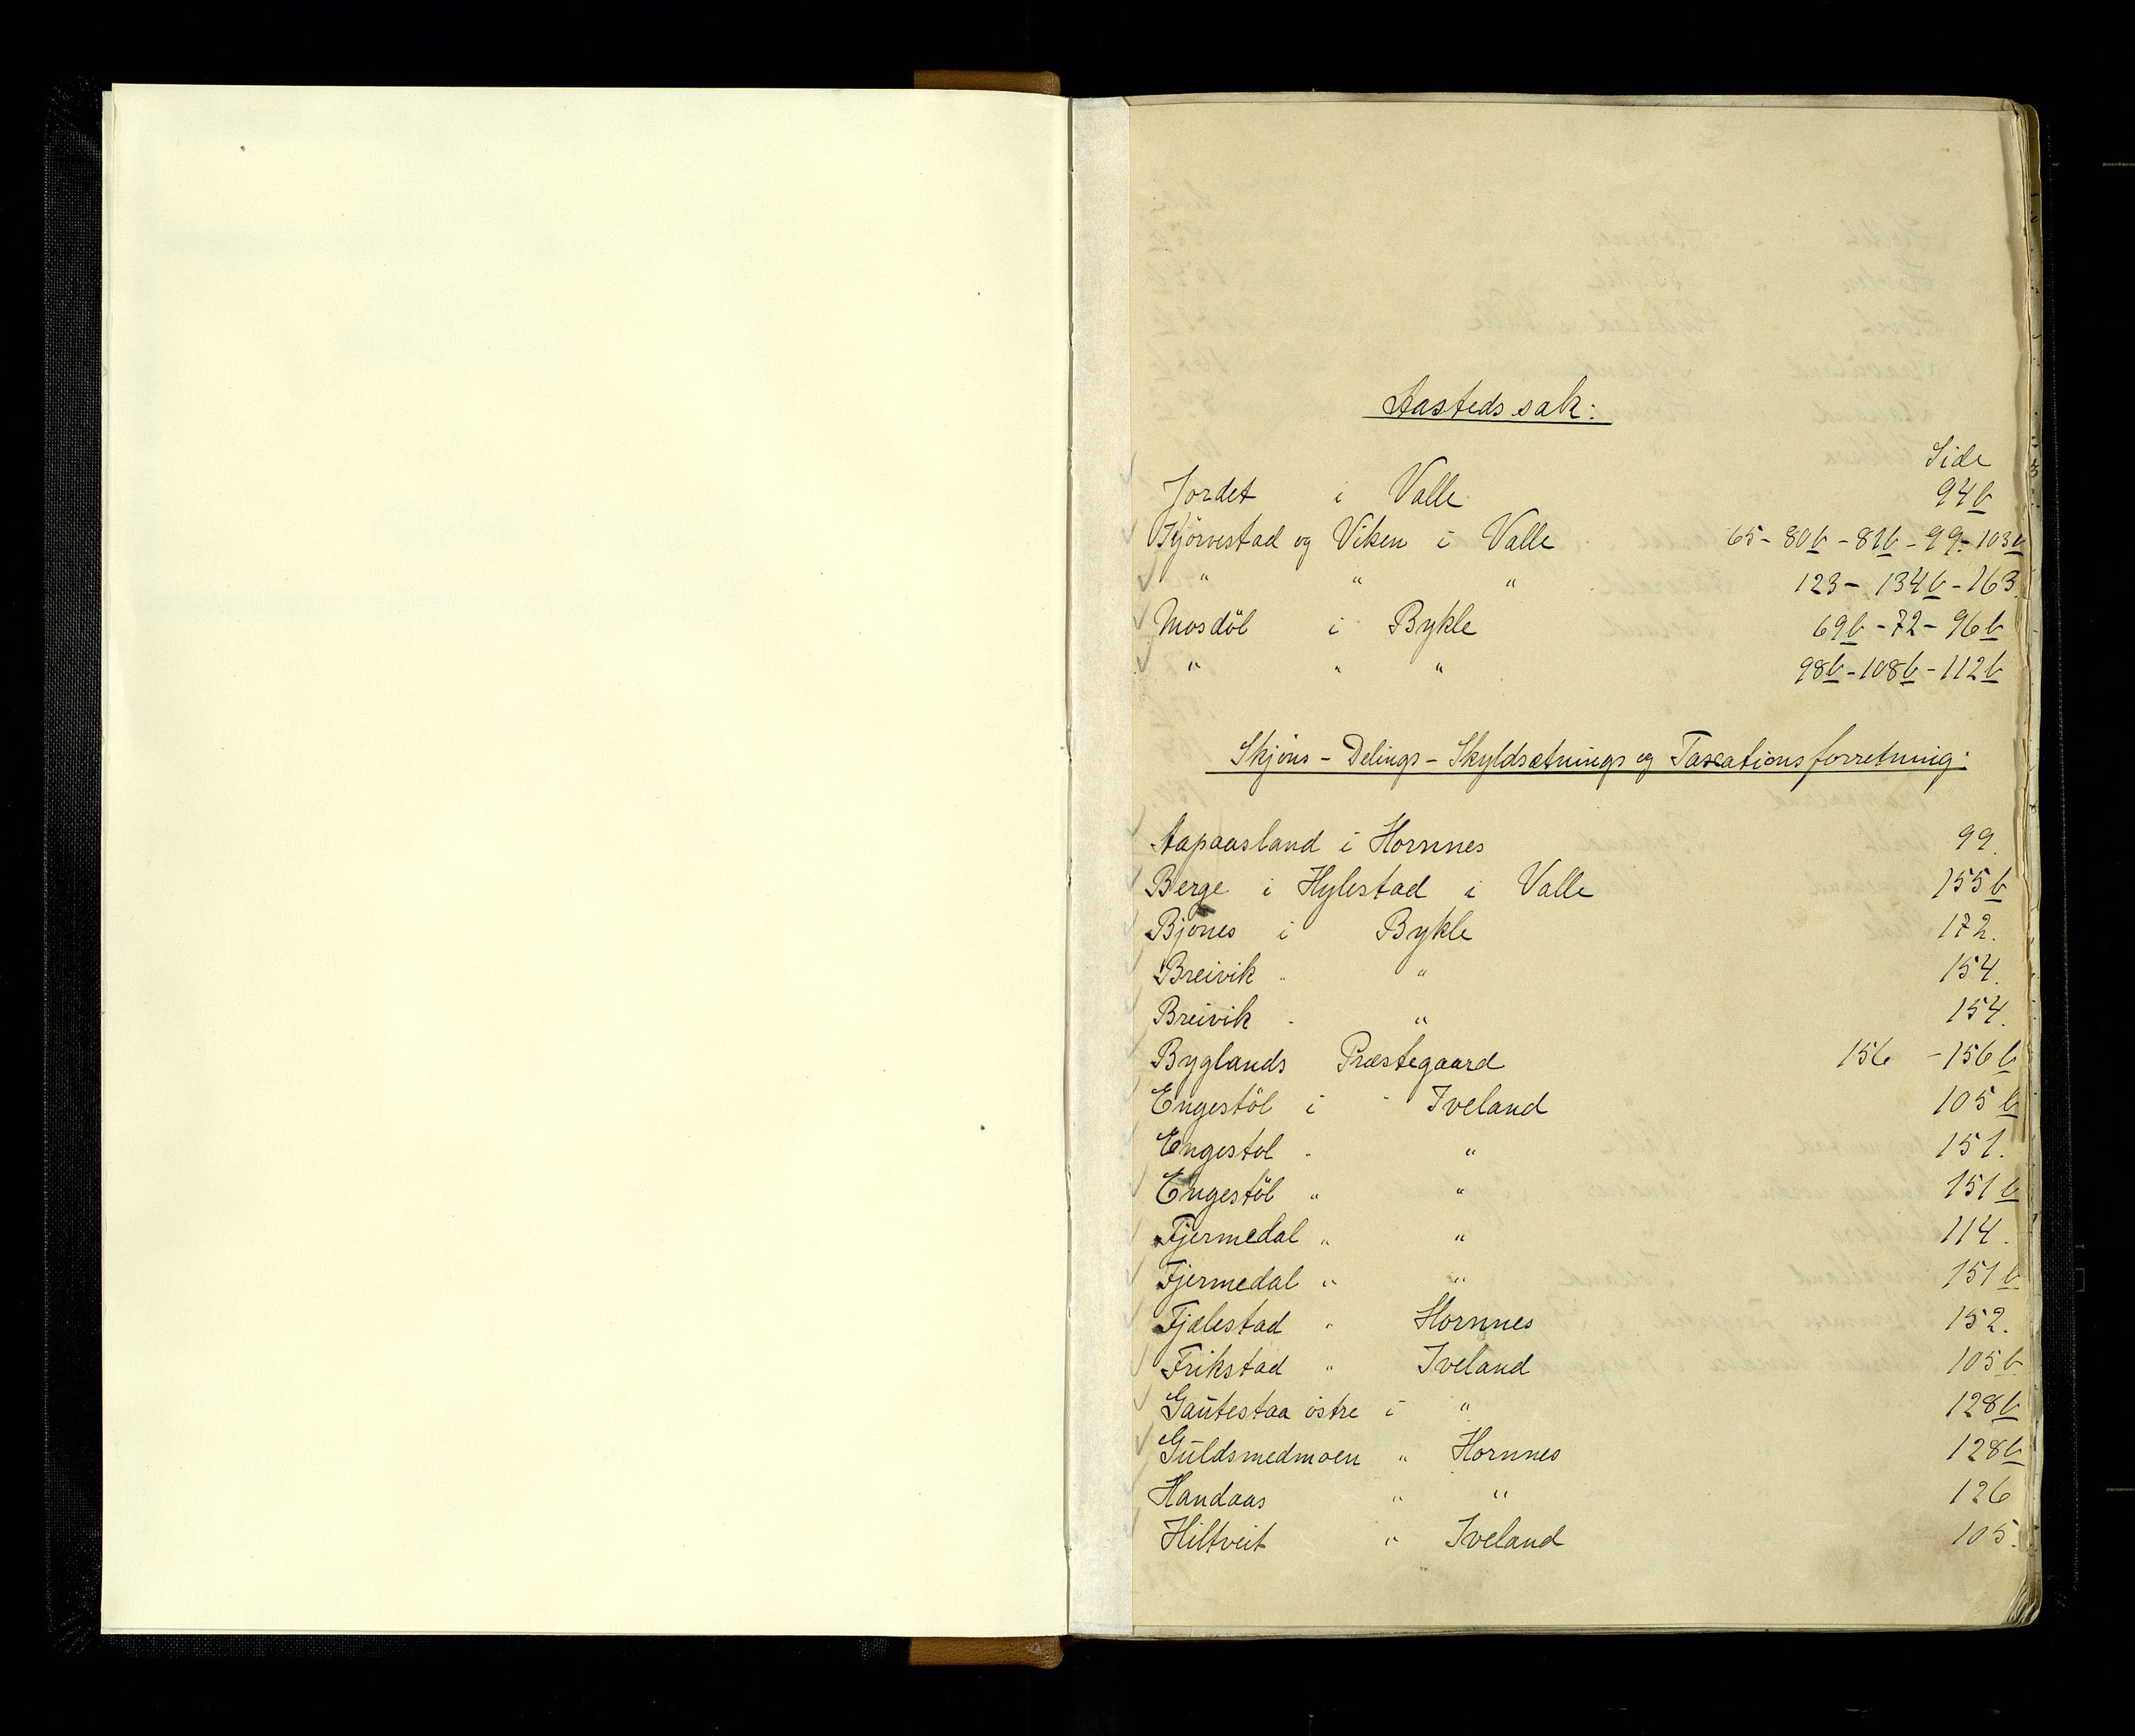 Aastedssak:
Side
Jordet i Valle 94b
Kjörvestad og Viken i Valle 65-80b-81b-99-103b
" " " 123-134b-163.
Mosdöl i Bykle 69b-72-96b
" " " 98b-108b-112b
Skjöns-Delings-Skyldsætnings og Taxationsforretning:
Aapaasland i Hornnes 99.
Berge i Hylestad i Valle 155b
Bjones i Bykle 172.
Breivik " " 154.
Breivik - " 154.
Byglands Præstegaard 156 -156b
Engestöl i Iveland 105b
Engestöl - " 151.
Engestöl " " 151b
Fjermedal " " 114.
Fjermedal " " 151b
Fjælestad " Hornnes 152.
Frikstad " Iveland 105b
Gautestaa östre i " 128b
Guldsmedmoen " Hornnes 128b
Handaas " " 126
Hiltveit " Iveland 105.